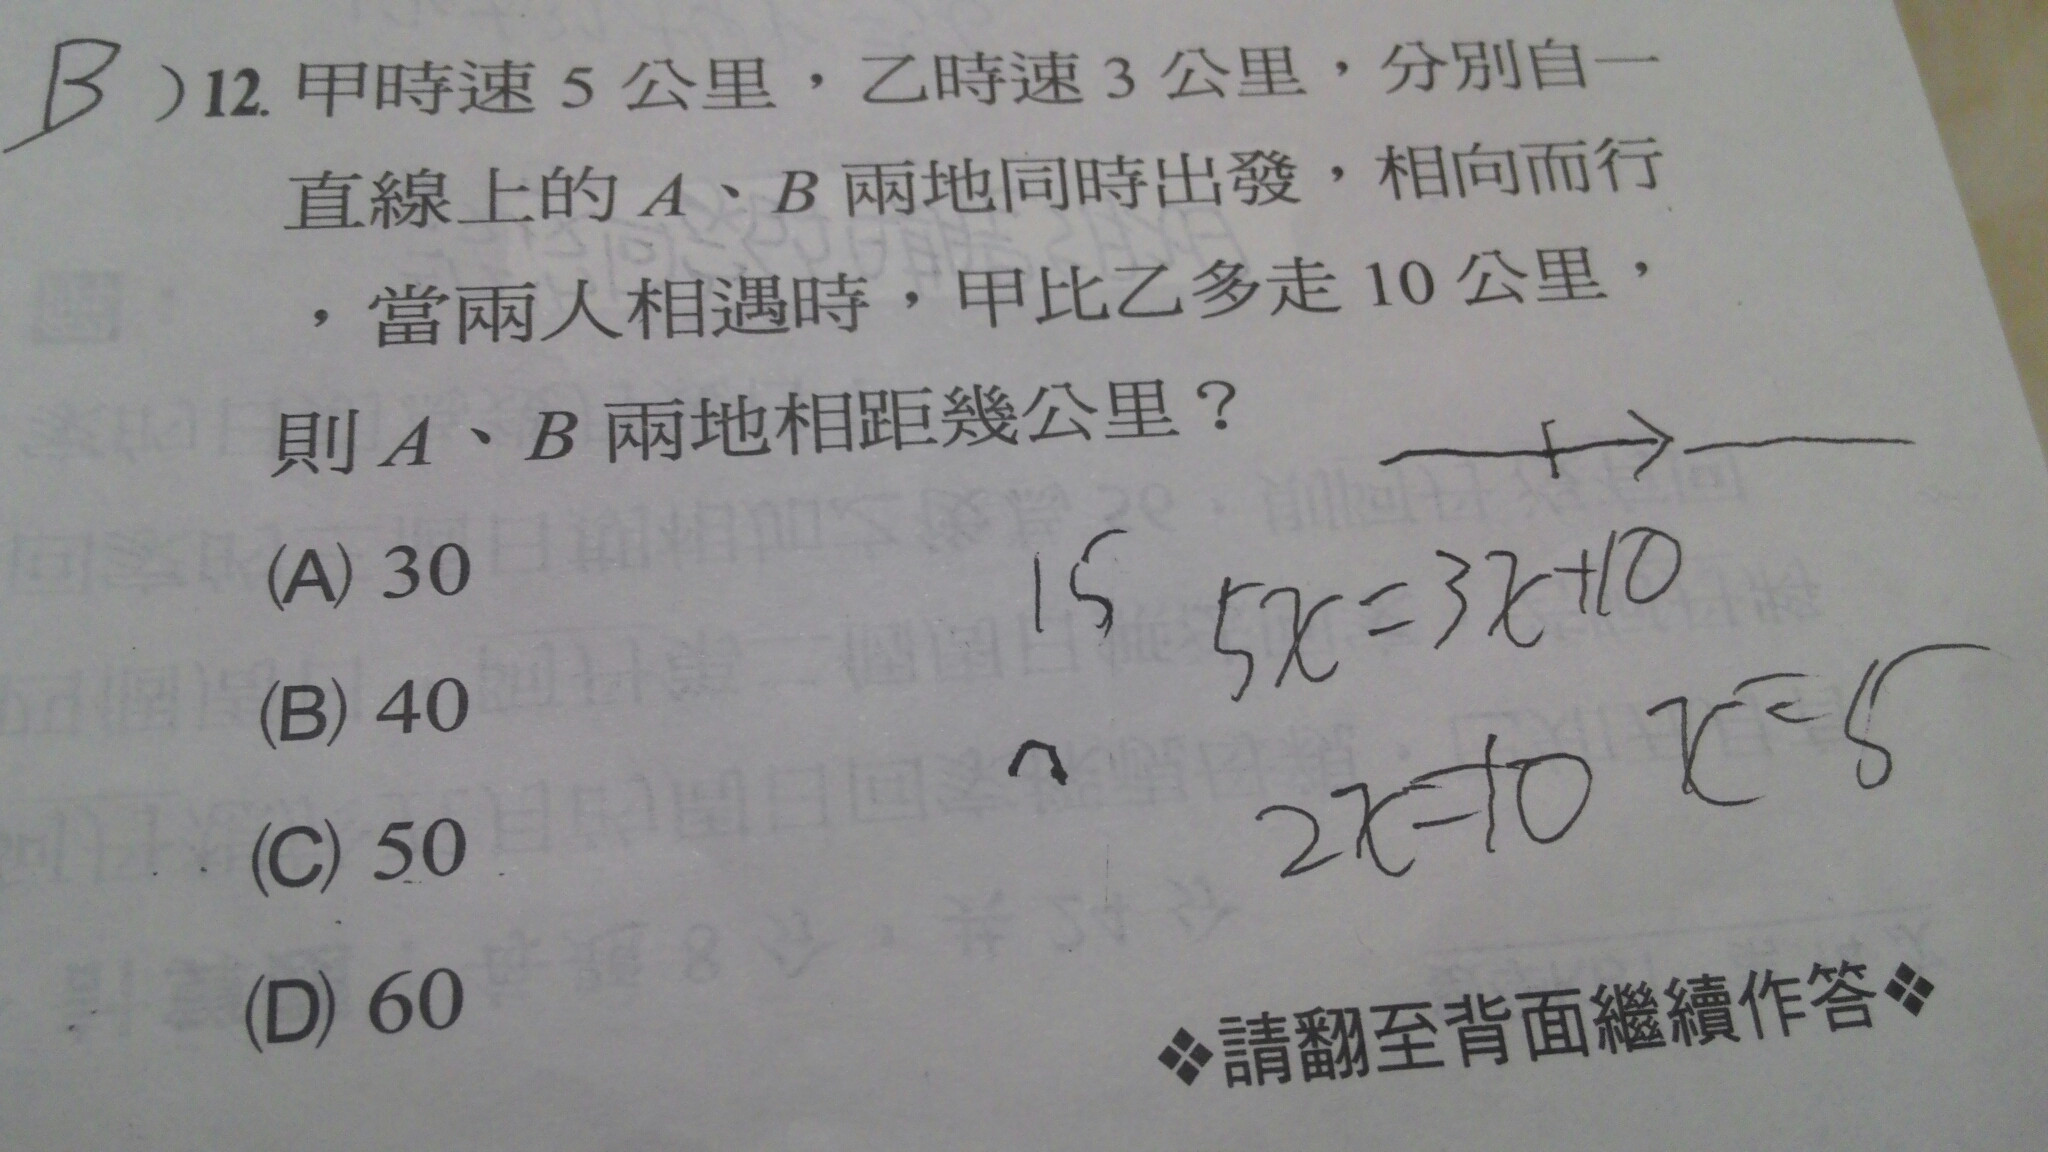 B ) 12. 甲時速 5 公里，乙時速 3 公里，分別自一
直線上的 A、B 兩地同時出發，相向而行
，當兩人相遇時，甲比乙多走 10 公里，
則 A、B 兩地相距幾公里？
(A) 30
15 5x=3x+10
(B) 40
2x=10 x=5
(C) 50
(D) 60
❖請翻至背面繼續作答❖